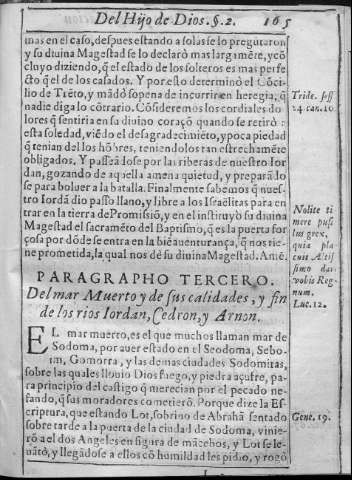 Del Hijo de Dios. §. 2. 165
mas en el caso, despues estando a solas se lo pregũtaron
y su diuina Magestad se lo declarò mas largamẽte, y cõ
cluyo diziendo, q̃ el estado de los solteros es mas perfe
cto q̃ el de los casados. Y por esto determinò el Cõci-
lio de Trẽto, y mãdò so pena de incurrir en heregia, q̃
nadie diga lo cõtrario. Cõsideremos los cordiales do
lores q̃ sentiria en su diuino coraçõ quando se retirò a
esta soledad, viẽdo el desagradecimiẽto, y poca piedad
q̃ tenian del los hõbres, teniendolos tan estrechamẽte
obligados. Y passeãdose por las riberas de nuestro Ior
dan, gozando de aquella amena quietud, y preparãlo
se para boluer a la batalla. Finalmente sabemos q̃ nues-
tro Iordã dio passo llano, y libre a los Israëlitas para en
trar en la tierra de Promissiõ, y en el instituyò su diuina
Magestad el sacramẽto del Baptismo, q̃ es la puerta for
çosa por dõde se entra en la biẽauenturança, q̃ nos tie-
ne prometida, la qual nos dè su diuina Magestad. Amẽ.
Tride. sess
24. can. 10.
Nolite ti
mere pusi
lus grex,
quia pla
cuit Altis
simo dar
vobis Reg-
num.
Luc. 12.
PARAGRAPHO TERCERO.
Del mar Muerto y de sus calidades, y fin
de los rios Iordan, Cedron, y Arnon.
EL mar muerto, es el que muchos llaman mar de
Sodoma, por auer estado en el Seodoma, Sebo-
im, Gomorra, y las demas ciudades Sodomitas,
sobre las quales llouio Dios fuego, y piedra açufre, pa-
ra principio del castigo q̃ merecian por el pecado ne-
fando, q̃ sus moradores cometierõ. Porque dize la Es-
criptura, que estando Lot, sobrino de Abrahã sentado
sobre tarde a la puerta de la ciudad de Sodoma, vinie-
rõ a el dos Angeles en figura de mãcebos, y Lot se le-
uãtò, y llegãdose a ellos cõ humildad les pidio, y rogò
Gene. 19.